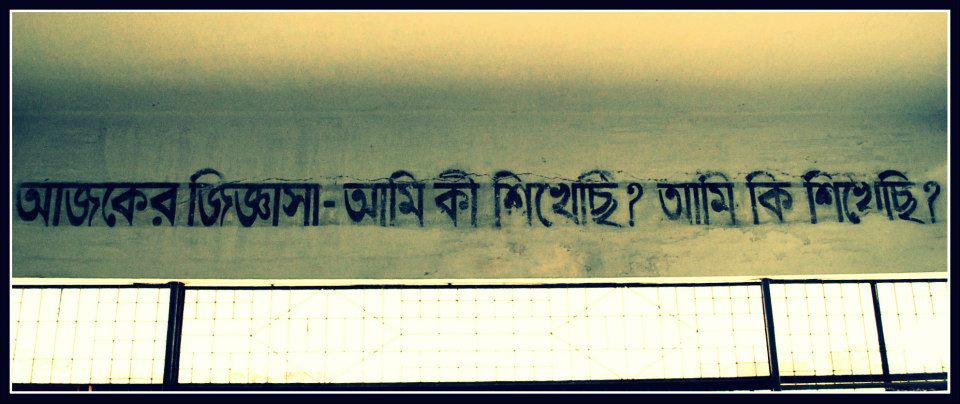 আজকের জিজ্ঞাসা- আমি কী শিখেছি? আমি কি শিখেছি?